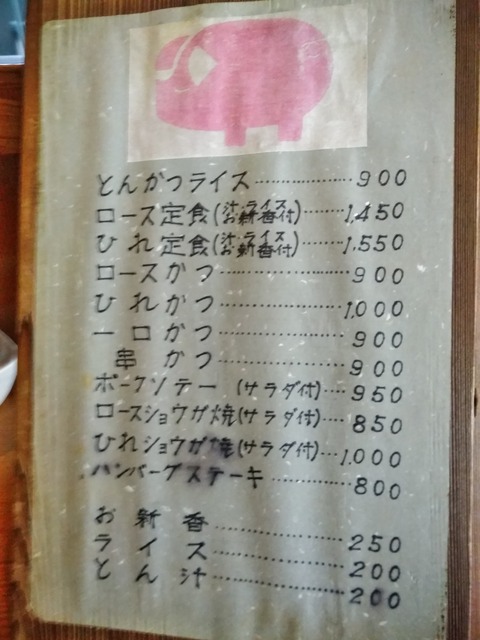 とんかつライス……………900
ロース定食(汁.ライスお新香付)……1,450
ひれ定食(汁.ライスお新香付)……1,550
ロースかつ……………900
ひれかつ……………1,000
一口かつ……………900
串かつ……………900
ポークソテー(サラダ付)…950
ロースショウガ焼(サラダ付)…850
ひれショウガ焼(サラダ付)…1,000
ハンバーグステーキ…………800
お新香……………250
ライス……………200
とん汁……………200